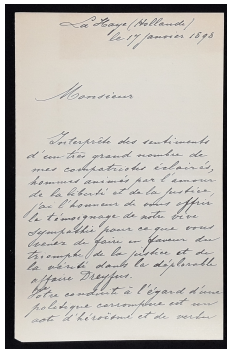 La Haye (Hollande)
le 17 janvier 1898
Monsieur
Interprète des sentiments
d'un très grand nombre de
mes compatriotes éclairés,
hommes animés par l'amour
de la liberté et de la justice
j'ai l'honneur de vous offrir
le témoignage de notre vive
sympathie pour ce que vous
venez de faire en faveur du
triomphe de la justice et de
la vérité dans la déplorable
affaire Dreyfus.
Votre conduite à l'égard d'une
politique corrompue est un
acte d'héroïsme et de vertu